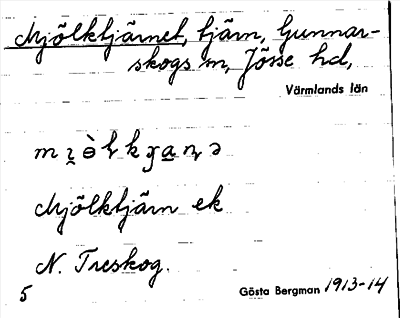 Mjölktjärnet, tjärn, Gunnar-
skogs sn, Jösse hd,
Värmlands län
Mjölktjärn ek
N. Treskog.
5 Gösta Bergman 1913-14